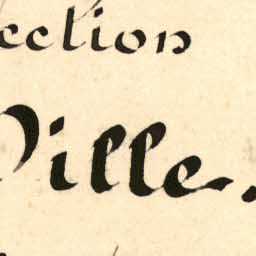 ection
Ville.